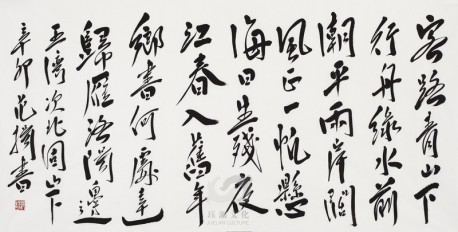 客路青山下
行舟绿水前
潮平两岸阔
风正一帆悬
海日生残夜
江春入旧年
乡书何处达
归雁洛阳边
王湾次北固山下
辛卯 范 书
玖澜文化
JIULAN CULTURE